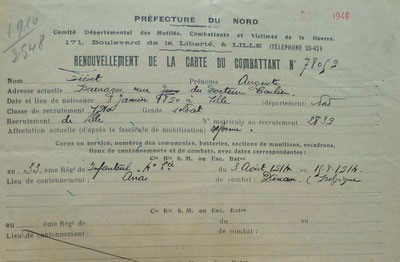 PRÉFECTURE DU NORD
1948
1910
2548
Comité Départemental des Mutilés, Combattants et Victimes de la Guerre.
171, Boulevard de la Liberté, à LILLE (TÉLÉPHONE 23-42)
RENOUVELLEMENT DE LA CARTE DU COMBATTANT N° 78052
Nom Prénoms Auguste
Adresse actuelle rue du Docteur
Date et lieu de naissance Janvier à Lille (département) Nord
Classe de recrutement Grade soldat
Recrutement de Lille N° matricule au recrutement 2839
Affectation actuelle (d'après le fascicule de mobilisation) réformé
Corps ou service, numéros des compagnies, batteries, sections de munitions, escadrons,
lieux de cantonnements et de combats, avec dates correspondantes :
Cie Bie S. M. ou Esc. Batns
au 33 ème Régt de Infanterie du 3 Août 1914 au 15.8.1914
Lieu de cantonnement : Arras de combat : Dinan (Belgique
Cie Bie S. M. ou Esc. Batns
au ème Régt de du au
Lieu de cantonnement : de combat :